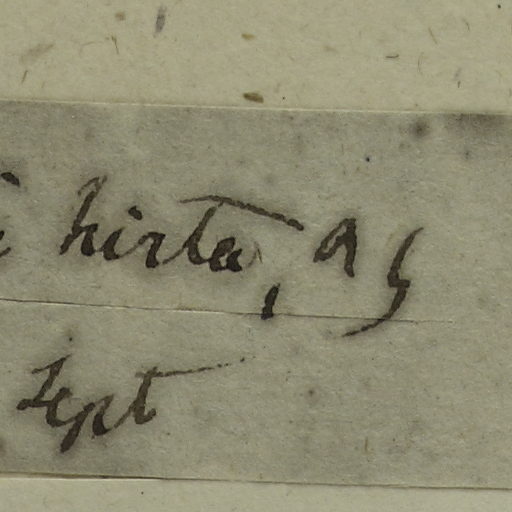 hirta, 
Sept